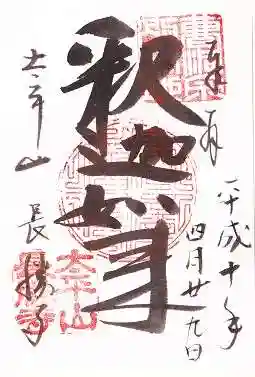 奉拝
平成十年
四月廿九日
釈迦如来
太平山
長勝寺
太平山